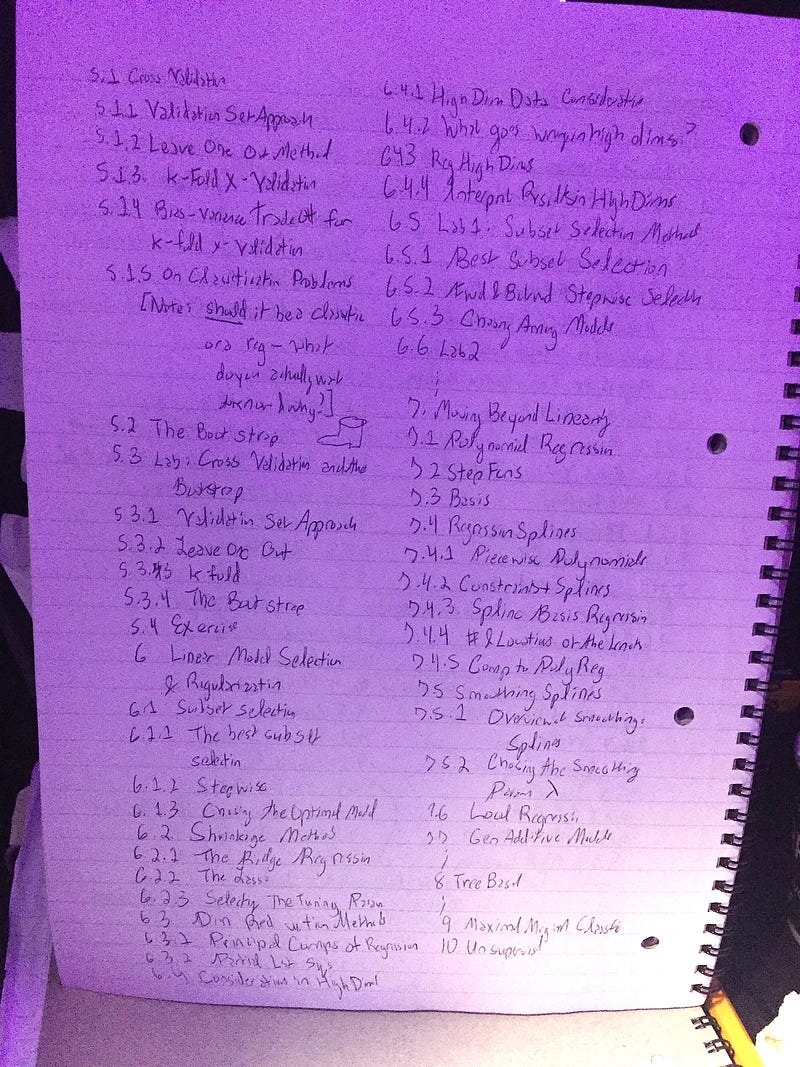 5.1 Cross Validation
5.1.1 Validation Set Approach
5.1.2 Leave One Out Method
5.1.3. k-Fold X-Validation
5.1.4 Bias-Variance Tradeoff for
k-fold x-validation
5.1.5 On Classification Problems
[Note: should it be a classific
or a reg - what
do you actually want
to know & why?]
5.2 The Bootstrap
5.3 Lab: Cross Validation and the
Bootstrap
5.3.1 Validation Set Approach
5.3.2 Leave One Out
5.3.3 k fold
5.3.4 The Bootstrap
5.4 Exercise
6 Linear Model Selection
& Regularization
6.1 Subset selection
6.1.1 The best subset
selection
6.1.2 Stepwise
6.1.3 Choosing the Optimal Model
6.2. Shrinkage Methods
6.2.1 The Ridge Regression
6.2.2 The Lasso
6.2.3 Selecting The Tuning Param
6.3 Dim Reduction Methods
6.3.1 Principal Comps of Regression
6.3.2 Partial Lst Sqs
6.4 Considerations in High Dims
6.4.1 High Dim Data Consideratio
6.4.2 What goes wrong in high dims?
6.4.3 Reg High Dims
6.4.4 Interpret Results in High Dims
6.5 Lab 1: Subset Selection Method
6.5.1 Best Subset Selection
6.5.2 Fwd & Bckwd Stepwise Selectn
6.5.3 Choosing Among Models
6.6 Lab 2
⋮
7. Moving Beyond Linearity
7.1 Polynomial Regression
7.2 Step Funs
7.3 Basis
7.4 Regression Splines
7.4.1 Piecewise Polynomials
7.4.2 Constraints + Splines
7.4.3. Spline Basis Regression
7.4.4 # & Locations of the knots
7.4.5 Comp to Poly Reg
7.5 Smoothing Splines
7.5.1 Overview of Smoothing
Splines
7.5.2 Choosing the Smoothing
Param λ
7.6 Local Regression
7.7 Gen Additive Models
⋮
8 Tree Based
⋮
9 Maximal Margin Classific
10 Unsupervised